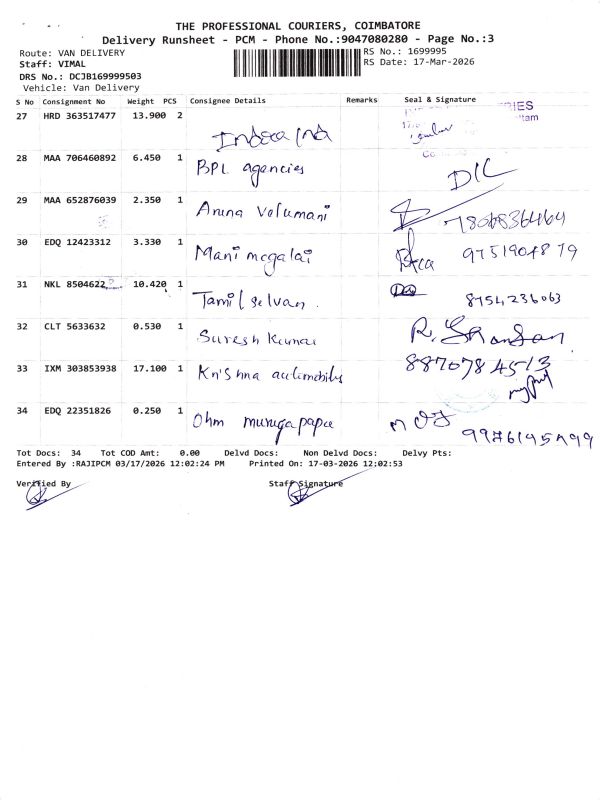 THE PROFESSIONAL COURIERS, COIMBATORE
Delivery Runsheet - PCM - Phone No.:9047080280 - Page No.:3
Route: VAN DELIVERY
RS No.: 1699995
Staff: VIMAL
RS Date: 17-Mar-2026
DRS No.: DCJB169999503
Vehicle: Van Delivery
S No Consignment No Weight PCS Consignee Details Remarks Seal & Signature
27 HRD 363517477 13.900 2
28 MAA 706460892 6.450 1 BPL agencies D/C
29 MAA 652876039 2.350 1 Aruna Velumani
30 EDQ 12423312 3.330 1 Mani megalai
31 NKL 8504622 10.420 1 Tamil selvan. 8754236063
32 CLT 5633632 0.530 1 Suresh Kumar R.
33 IXM 303853938 17.100 1 Krishna automobiles 8870784513
34 EDQ 22351826 0.250 1 Ohm muruga papu
Tot Docs: 34 Tot COD Amt: 0.00 Delvd Docs: Non Delvd Docs: Delvy Pts:
Entered By :RAJIPCM 03/17/2026 12:02:24 PM Printed On: 17-03-2026 12:02:53
Verified By Staff Signature